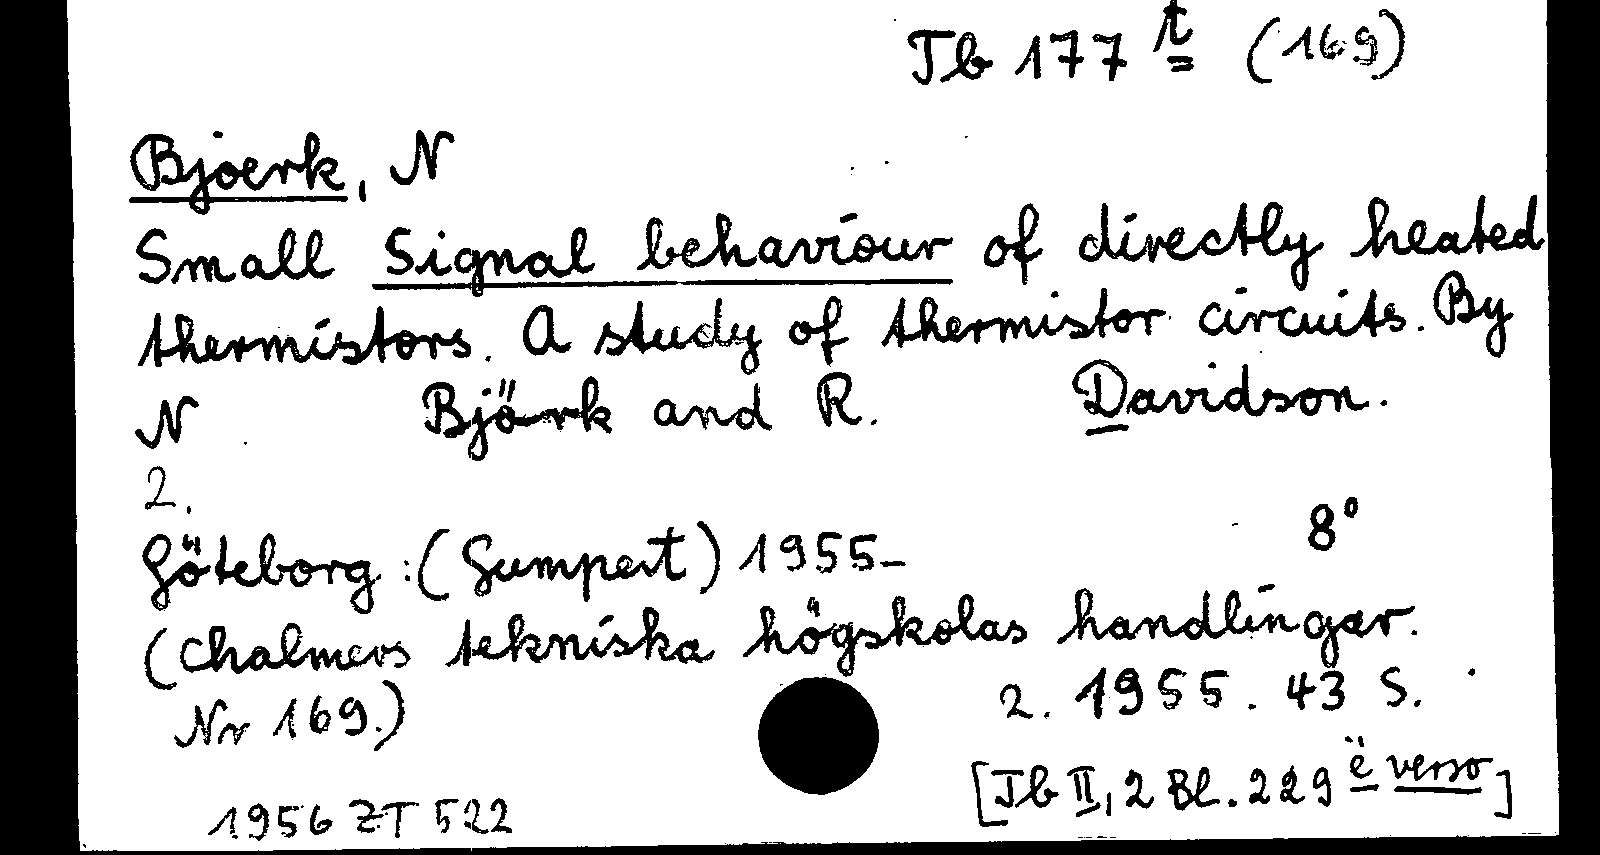 Tb 177 t (169)
Bjoerk, N
Small Signal behaviour of directly heated
thermistors. A study of thermistor circuits. By
N Björk and R. Davidson.
2.
8°
Göteborg : (Gumpert) 1955-
(Chalmers tekniska högskolas handlingar.
Nr 169.)
2. 1955. 43 S.
[Tb II, 2 Bl. 229 ë verso]
1956 ZT 522